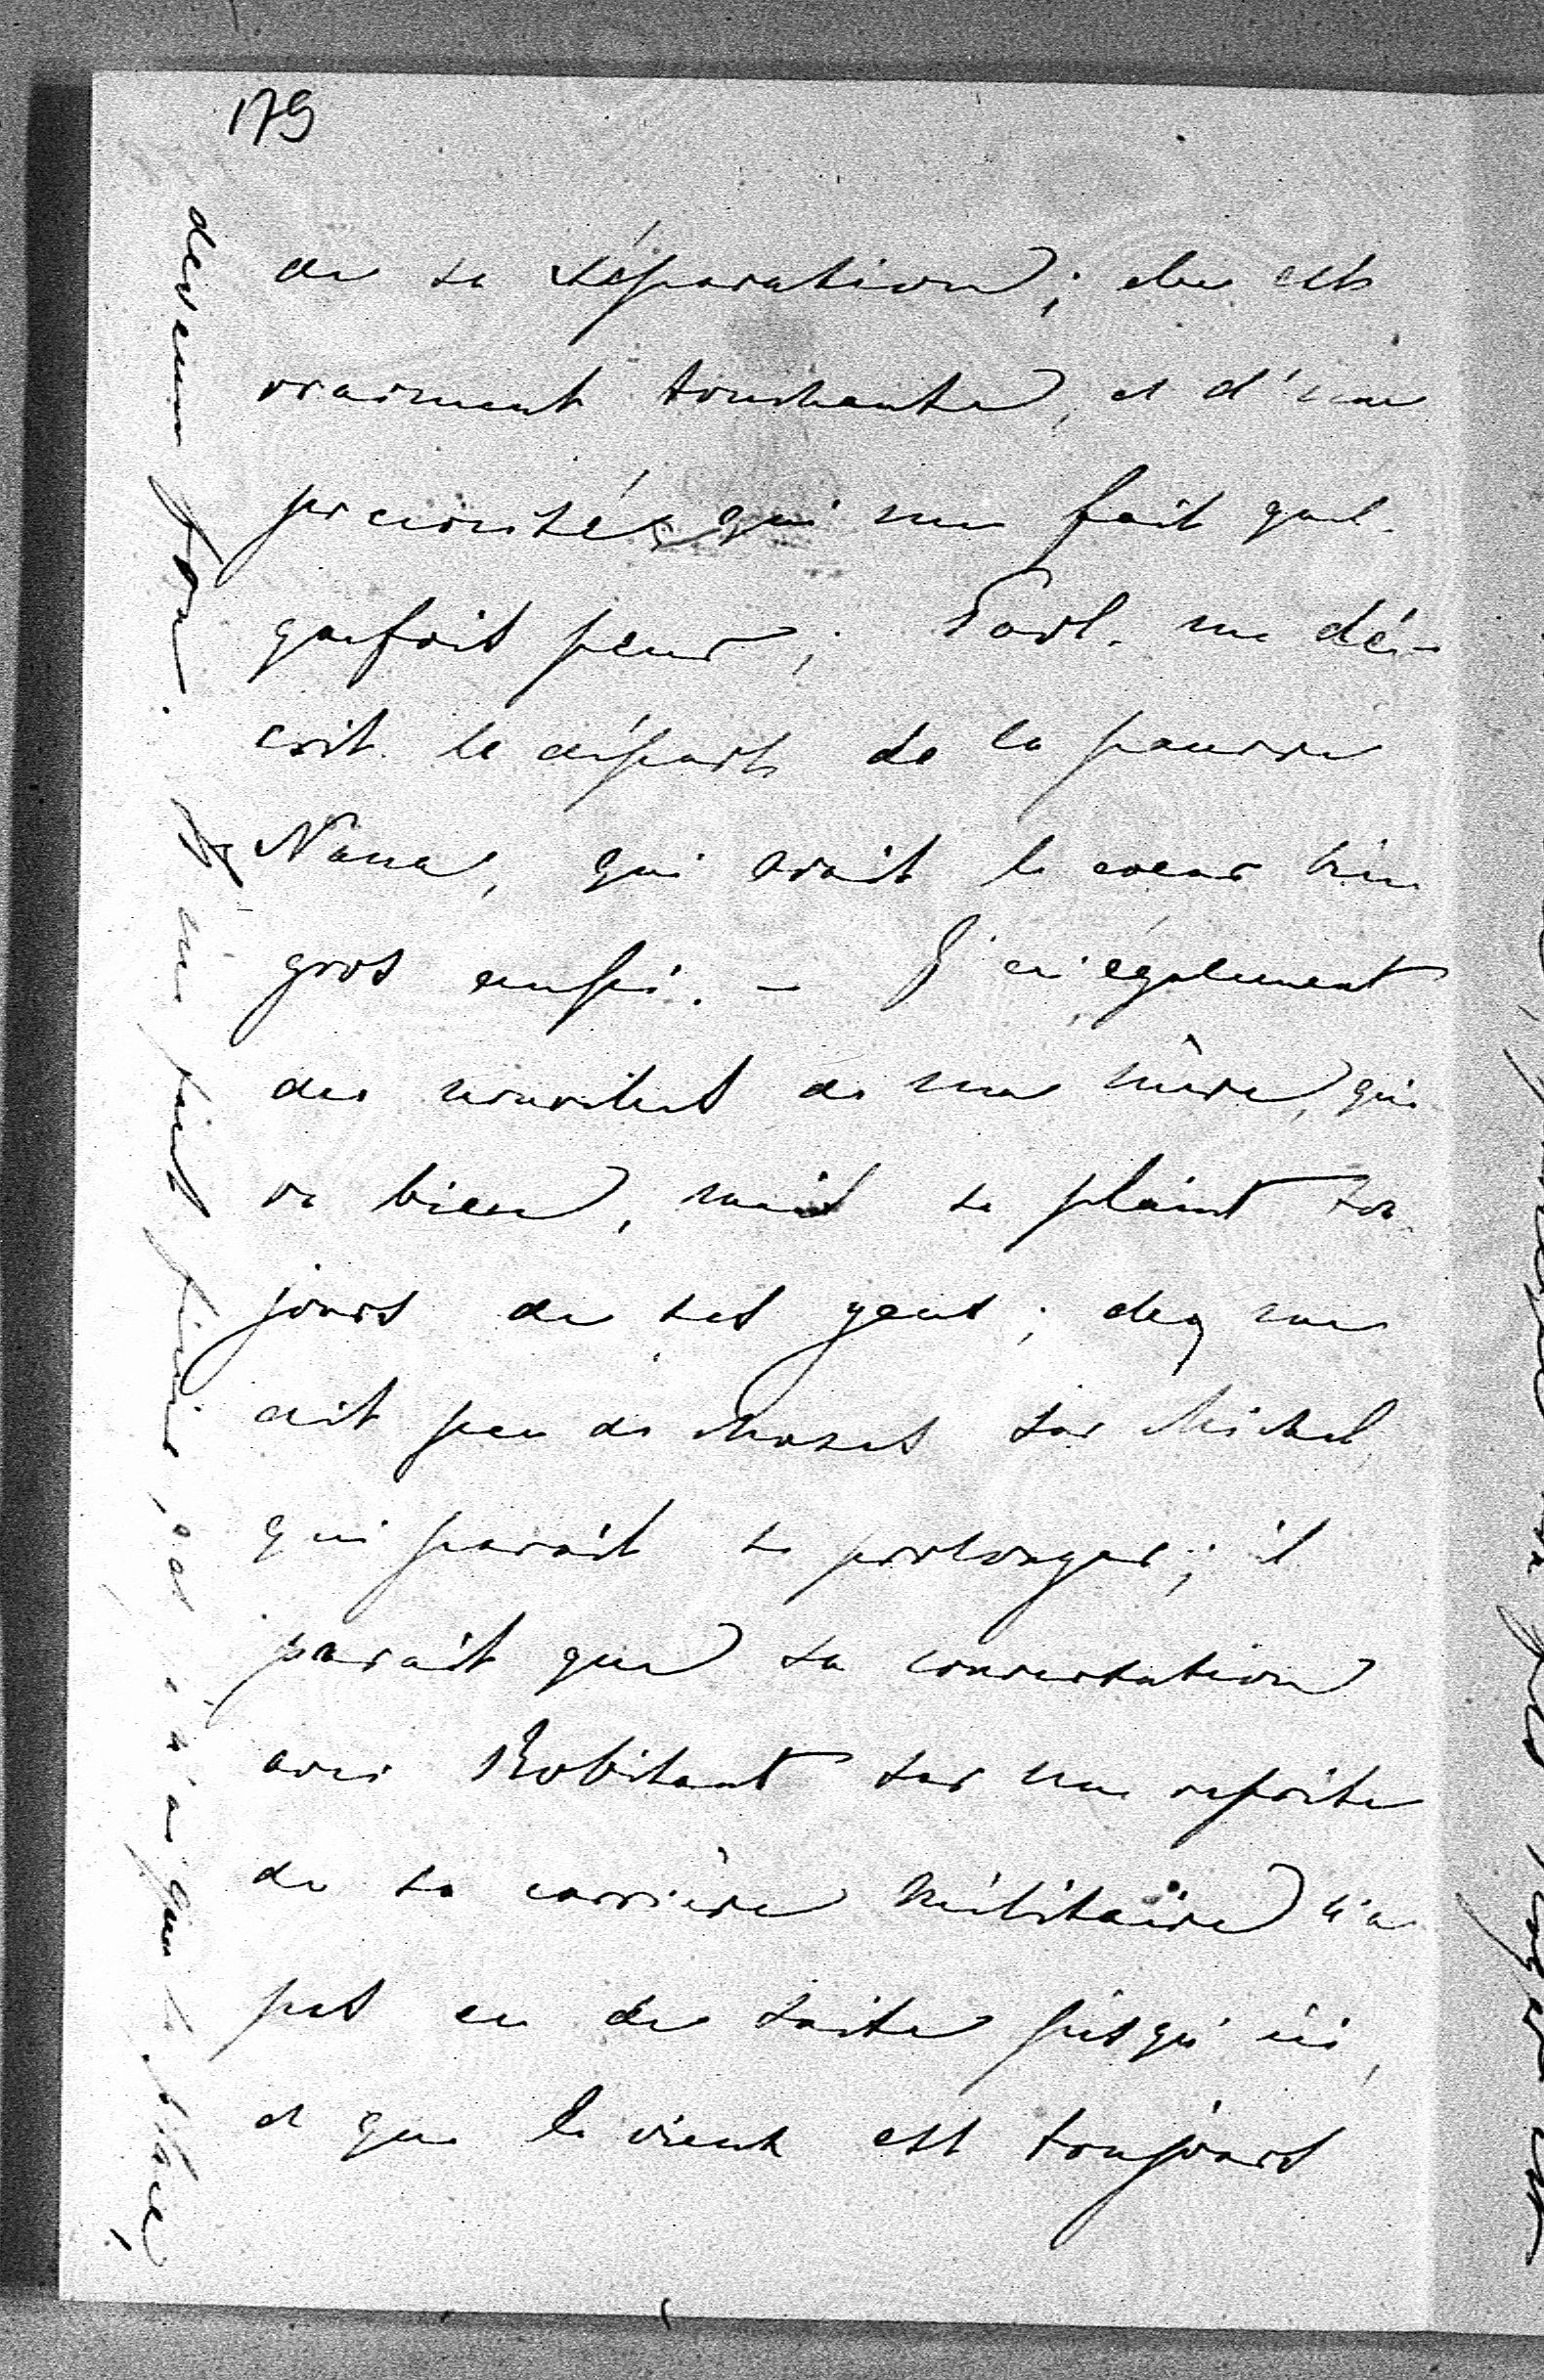 179
de sa séparation; elle est
vraiment touchante, et d'une
précosité, qui me fait quel-
quefois peur; Tarl. me dé-
crit le départ de la pauvre
Nana, qui avait le cœur bien
gros aussi. – J'ai également
des nouvelles de ma mère, qui
va bien, mais se plaint tou-
jours de ses yeux; elle me
dit peu de choses sur Michel,
qui paraît se prolonger; il
paraît que sa conversation
avec Robilant sur une reprise
de sa carrière militaire n'a
pas eu de suite jusqu'ici,
et que le vieux est toujours
fini, et
que le